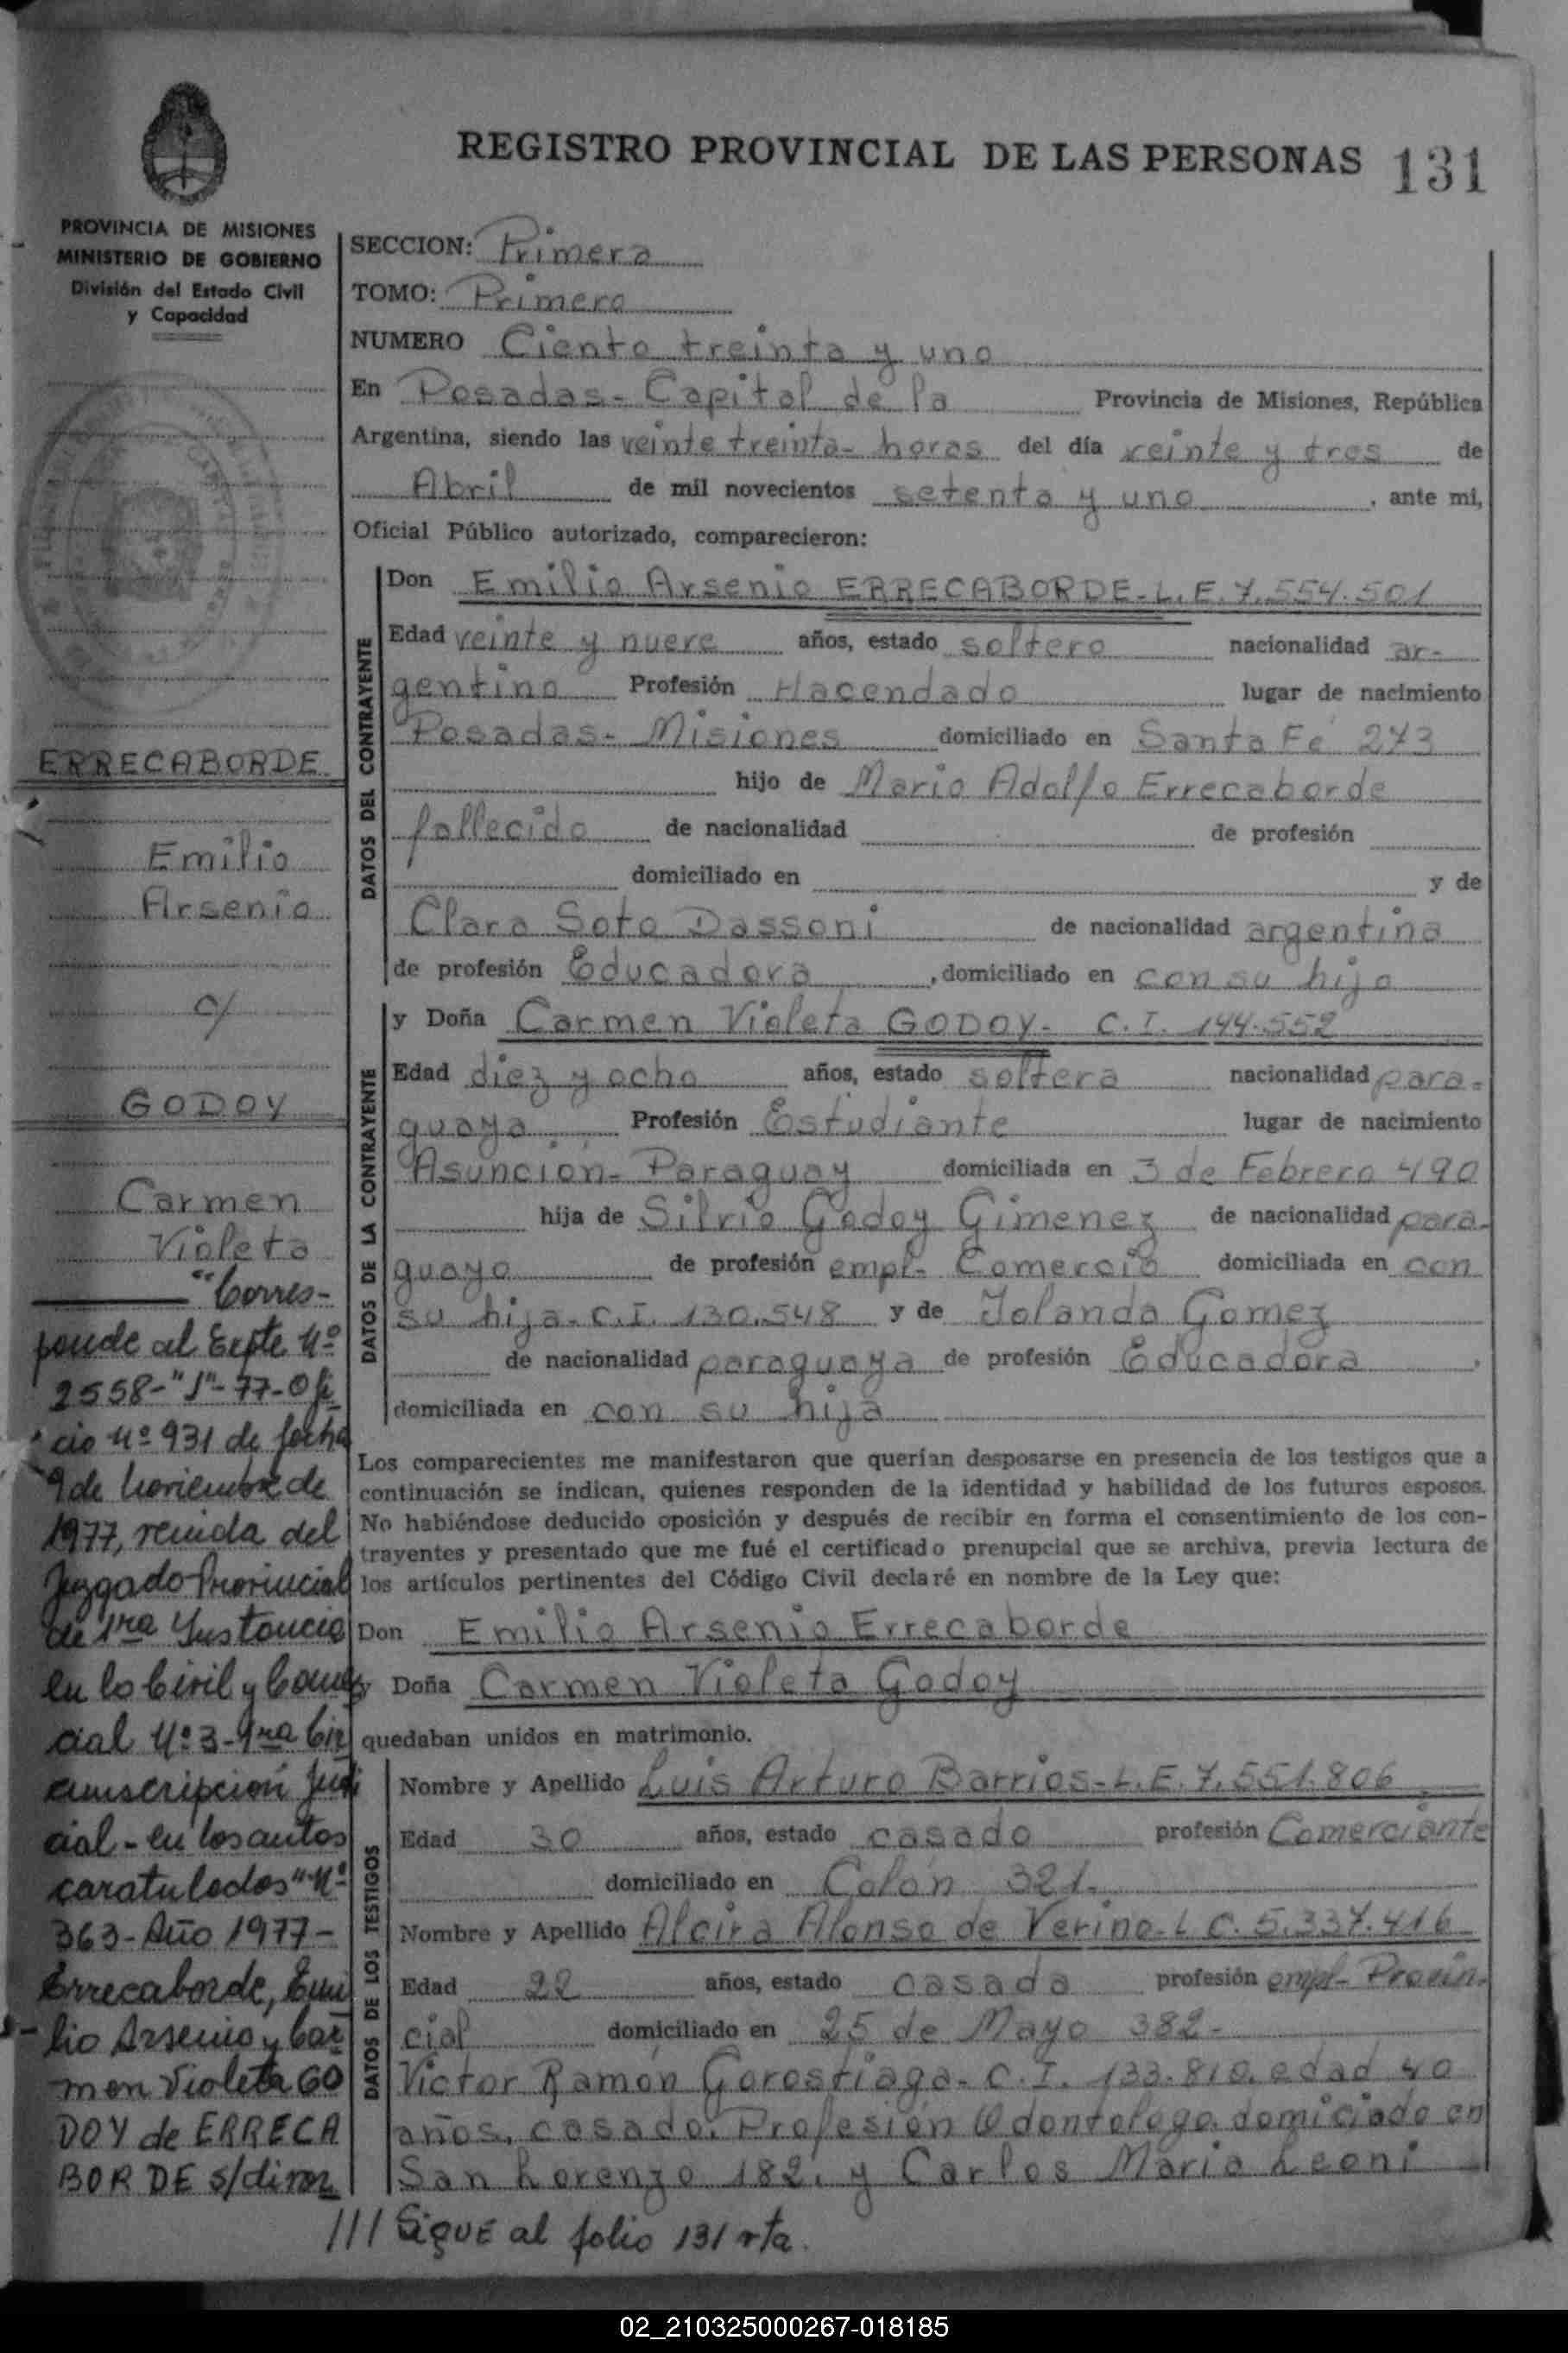 REGISTRO PROVINCIAL DE LAS PERSONAS 131
PROVINCIA DE MISIONES
MINISTERIO DE GOBIERNO
División del Estado Civil
y Capacidad
ERRECABORDE
Emilio
Arsenio
c/
GODOY
Carmen
Violeta
"Corres-
ponde al Expte Nº
2558-"J"-77-Ofi
cio Nº 931 de fecha
9 de Noviembre de
1977, venida del
Juzgado Provincial
de 1ra Instancia
en lo Civil y Comer
cial Nº 3-1ra Cir
cunscripción Judi
cial - en los autos
caratulados "Nº
363-Año 1977-
Errecaborde, Emi
lio Arsenio y Car
men Violeta GO
DOY de ERRECA
BORDE s/divor
SECCION: Primera
TOMO: Primero
NUMERO Ciento treinta y uno
En Posadas- Capital de la Provincia de Misiones, República
Argentina, siendo las veinte treinta- horas del día veinte y tres de
Abril de mil novecientos setenta y uno, ante mi,
Oficial Público autorizado, comparecieron:
DATOS DEL CONTRAYENTE
Don Emilio Arsenio ERRECABORDE-L.E.7.554.501
Edad veinte y nueve años, estado soltero nacionalidad ar-
gentino Profesión Hacendado lugar de nacimiento
Posadas- Misiones domiciliado en Santa Fé 273
hijo de Mario Adolfo Errecaborde
fallecido de nacionalidad de profesión
domiciliado en y de
Clara Soto Dassoni de nacionalidad argentina
de profesión Educadora, domiciliado en con su hijo
DATOS DE LA CONTRAYENTE
y Doña Carmen Violeta GODOY- C.I. 144.552
Edad diez y ocho años, estado soltera nacionalidad para-
guaya Profesión Estudiante lugar de nacimiento
Asunción- Paraguay domiciliada en 3 de Febrero 490
hija de Silvio Godoy Gimenez de nacionalidad para-
guayo de profesión empl- Comercio domiciliada en con
su hija-C.I. 130.548 y de Iolanda Gomez
de nacionalidad paraguaya de profesión Educadora,
domiciliada en con su hija
Los comparecientes me manifestaron que querían desposarse en presencia de los testigos que a
continuación se indican, quienes responden de la identidad y habilidad de los futuros esposos.
No habiéndose deducido oposición y después de recibir en forma el consentimiento de los con-
trayentes y presentado que me fué el certificado prenupcial que se archiva, previa lectura de
los artículos pertinentes del Código Civil declaré en nombre de la Ley que:
Don Emilio Arsenio Errecaborde
y Doña Carmen Violeta Godoy
quedaban unidos en matrimonio.
DATOS DE LOS TESTIGOS
Nombre y Apellido Luis Arturo Barrios-L.E.7.551.806
Edad 30 años, estado casado profesión Comerciante
domiciliado en Colón 321-
Nombre y Apellido Alcira Alonso de Verino-L C. 5.337.416
Edad 22 años, estado casada profesión empl- Provin-
cial domiciliado en 25 de Mayo 382-
Victor Ramón Gorostiaga- C.I. 133.810. edad 40
años, casado, Profesión Odontologo domiciado en
San Lorenzo 182, y Carlos Maria Leoni
/// Sigue al folio 131 vta.
02_210325000267-018185